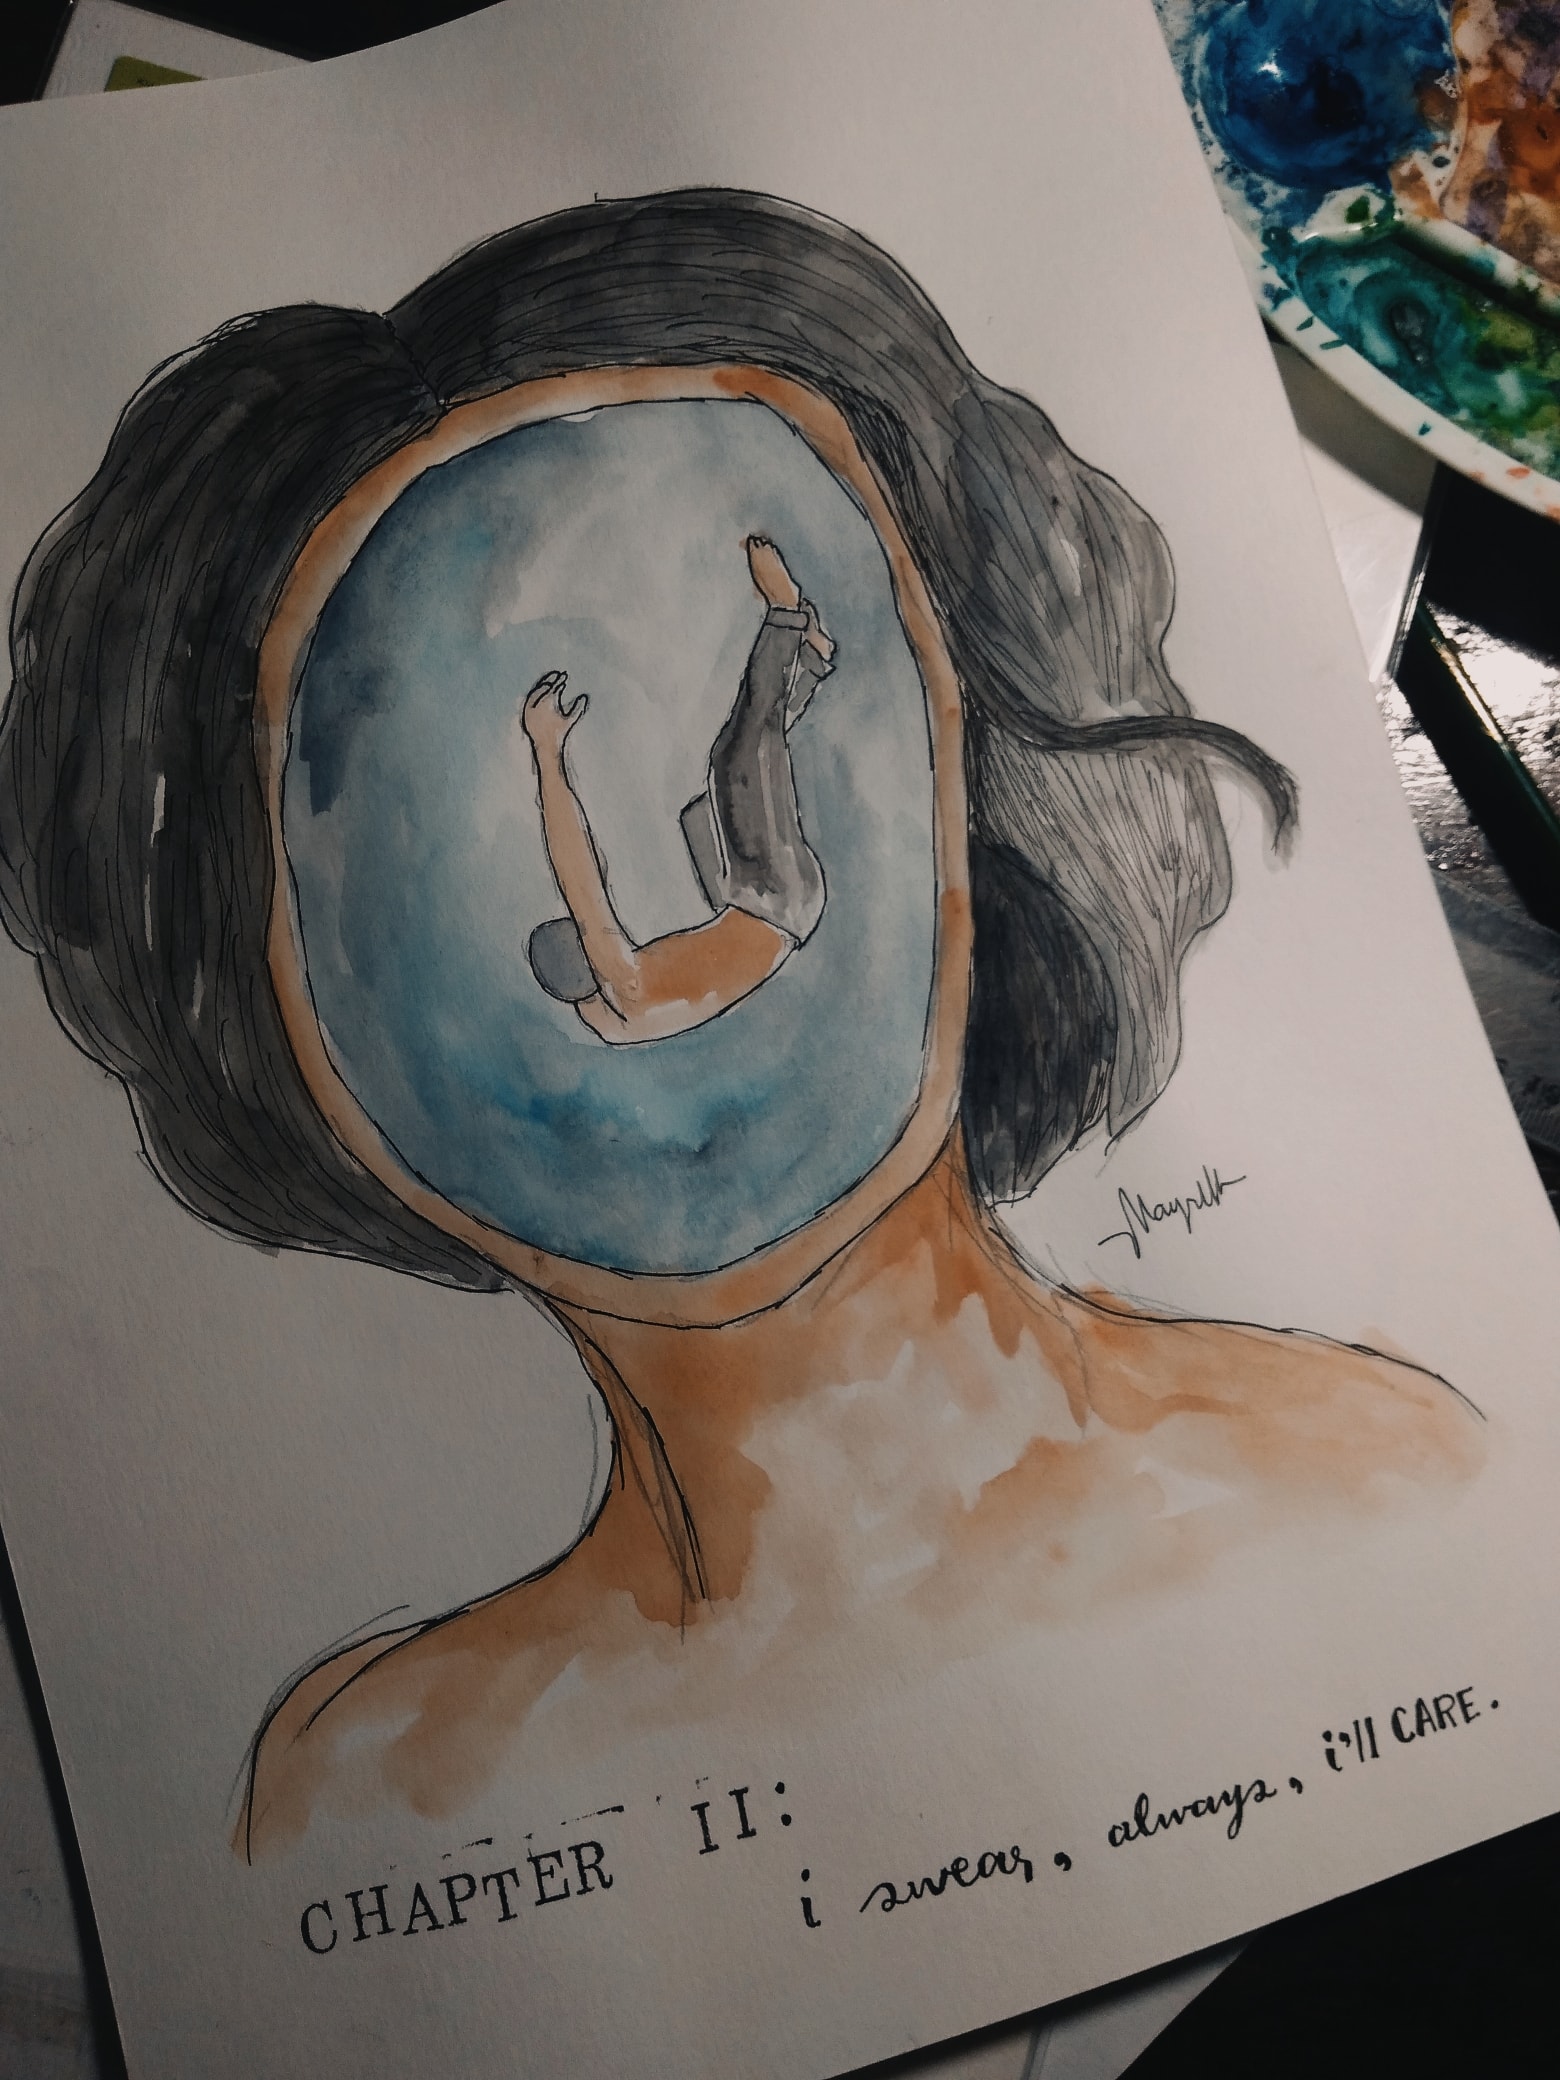 CHAPTER II:
i swear, always, i'll CARE.